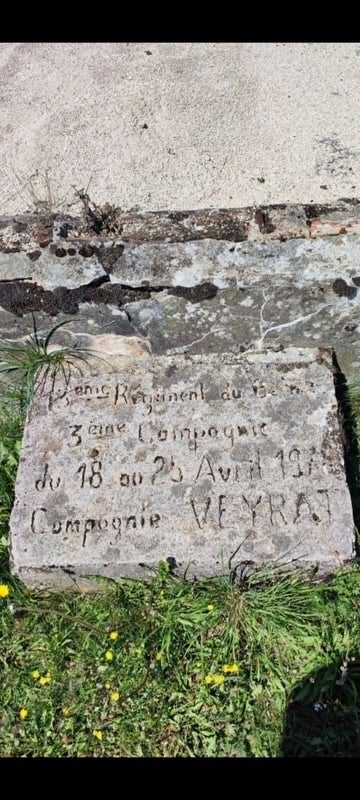 Régiment du
3ème Compagnie
du 18 au 25 Avril
Compagnie VEYRAT